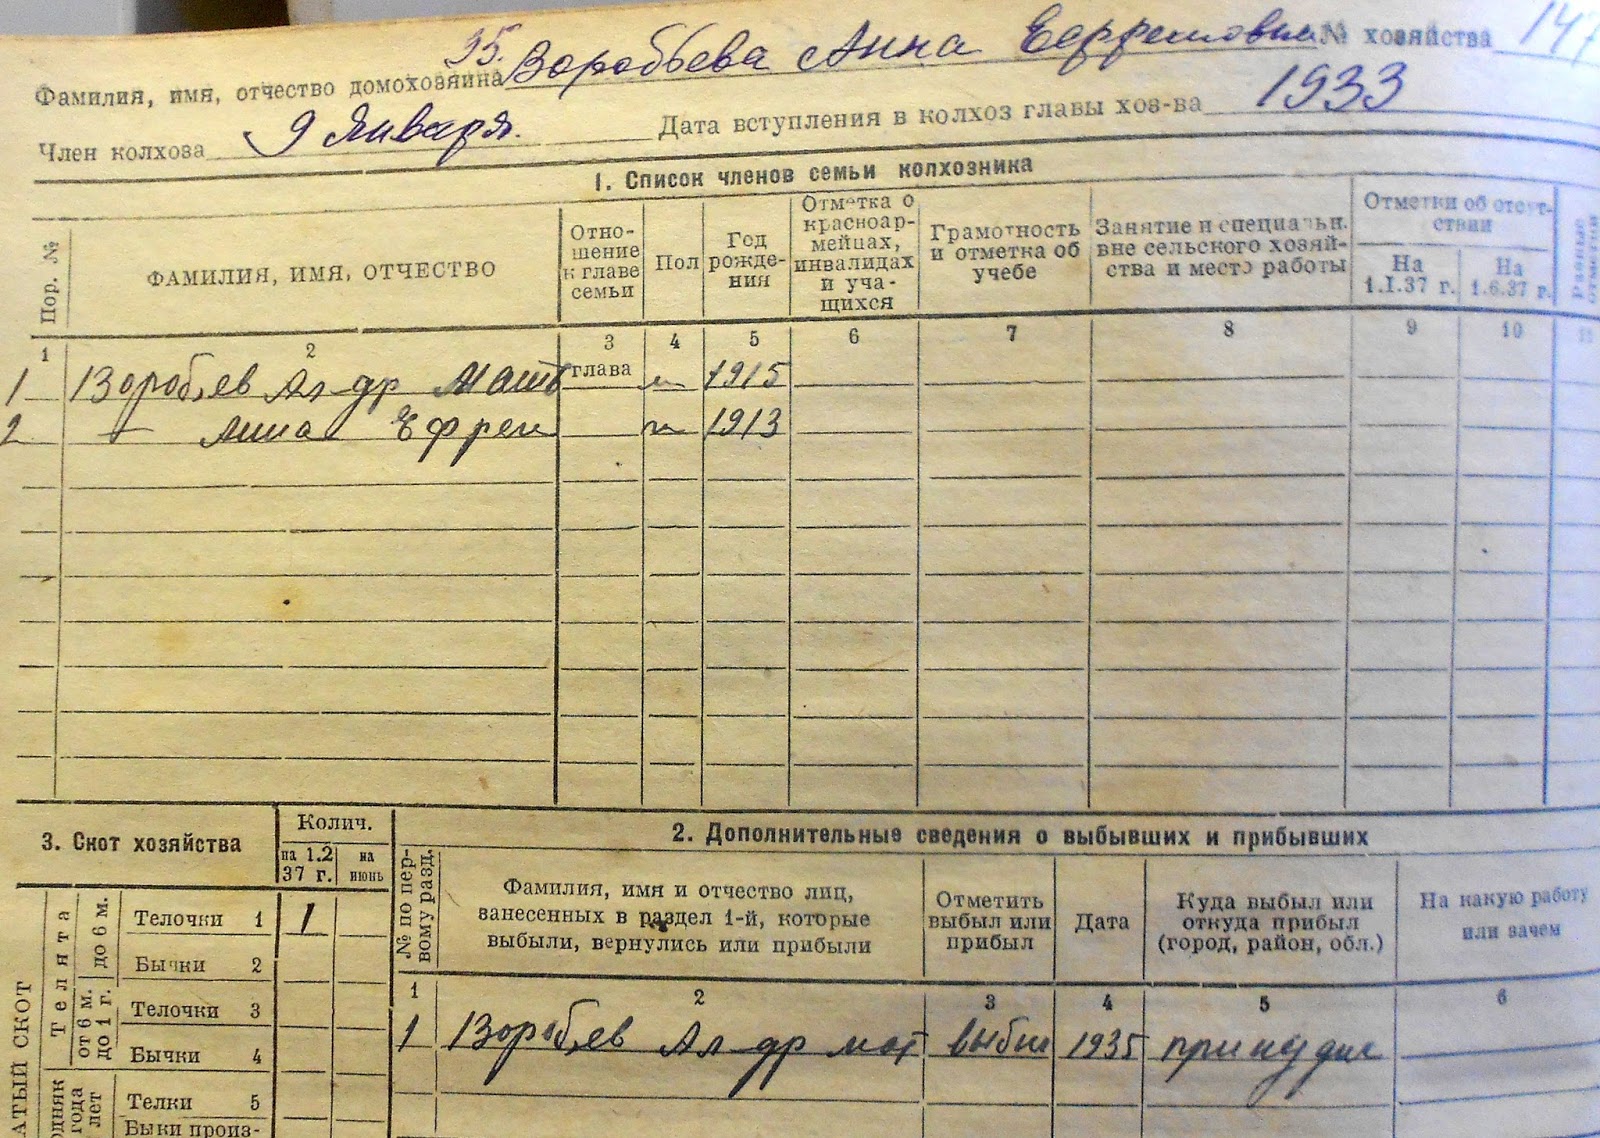 35.
Фамилия, имя, отчество домохозяина Воробьева Анна Ефремовна № хозяйства 147
Член колхоза 9 Января. Дата вступления в колхоз главы хоз-ва 1933
1. Список членов семьи колхозника
Пор. № ФАМИЛИЯ, ИМЯ, ОТЧЕСТВО Отно-шение к главе семьи Пол Год рожде-ния Отметка о красноар-мейцах, инвалидах и уча-щихся Грамотность и отметка об учебе Занятие и специальн. вне сельского хозяй-ства и место работы Отметки об отсут-ствии На 1.I.37 г. На 1.6.37 г. Разные отметки
1 2 3 4 5 6 7 8 9 10 11
1 Воробьев Ал-др Матв глава м 1915
2 — Анна Ефрем 1913
3. Скот хозяйства Колич. на 1.2 37 г. на июнь
2. Дополнительные сведения о выбывших и прибывших
№ по пер-вому разд. Фамилия, имя и отчество лиц, занесенных в раздел 1-й, которые выбыли, вернулись или прибыли Отметить выбыл или прибыл Дата Куда выбыл или откуда прибыл (город, район, обл.) На какую работу или зачем
1 2 3 4 5 6
1 Воробьев Ал-др мат выбыл 1935
АТЫЙ СКОТ
Телята
до 6 м.
Телочки 1 1
Бычки 2
от 6 м. до 1 г.
Телочки 3
Бычки 4
одняк года лет
Телки 5
Быки произ-